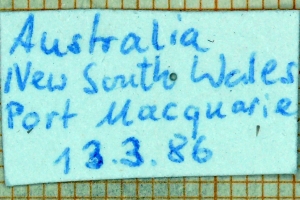 Australia
New South Wales
Port Macquarie
13.3.86